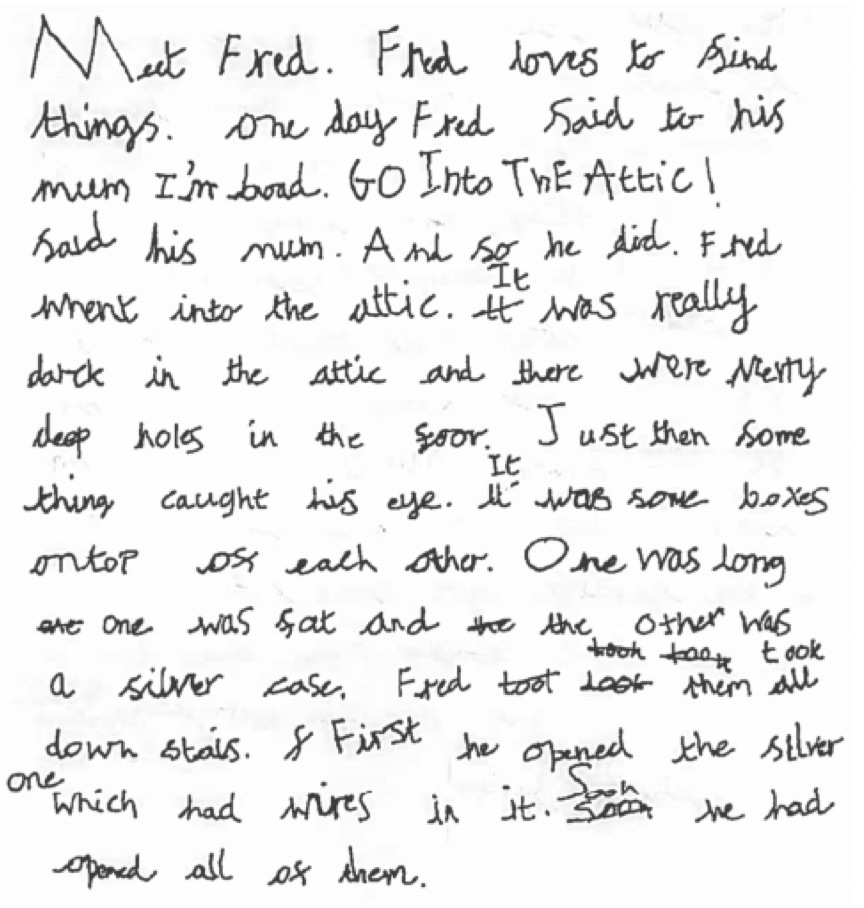 Meet Fred. Fred loves to find
things. One day Fred said to his
mum I'm boad. GO Into ThE Attic!
said his mum. And so he did. Fred
whent into the attic. It was really
darck in the attic and there were verry
deep holes in the foor. Just then some
thing caught his eye. It was some boxes
ontop off each other. One was long
one was fat and the other was
a silver case. Fred took them all
down stais. First he opened the silver
one which had wires in it. Soon he had
opened all of them.